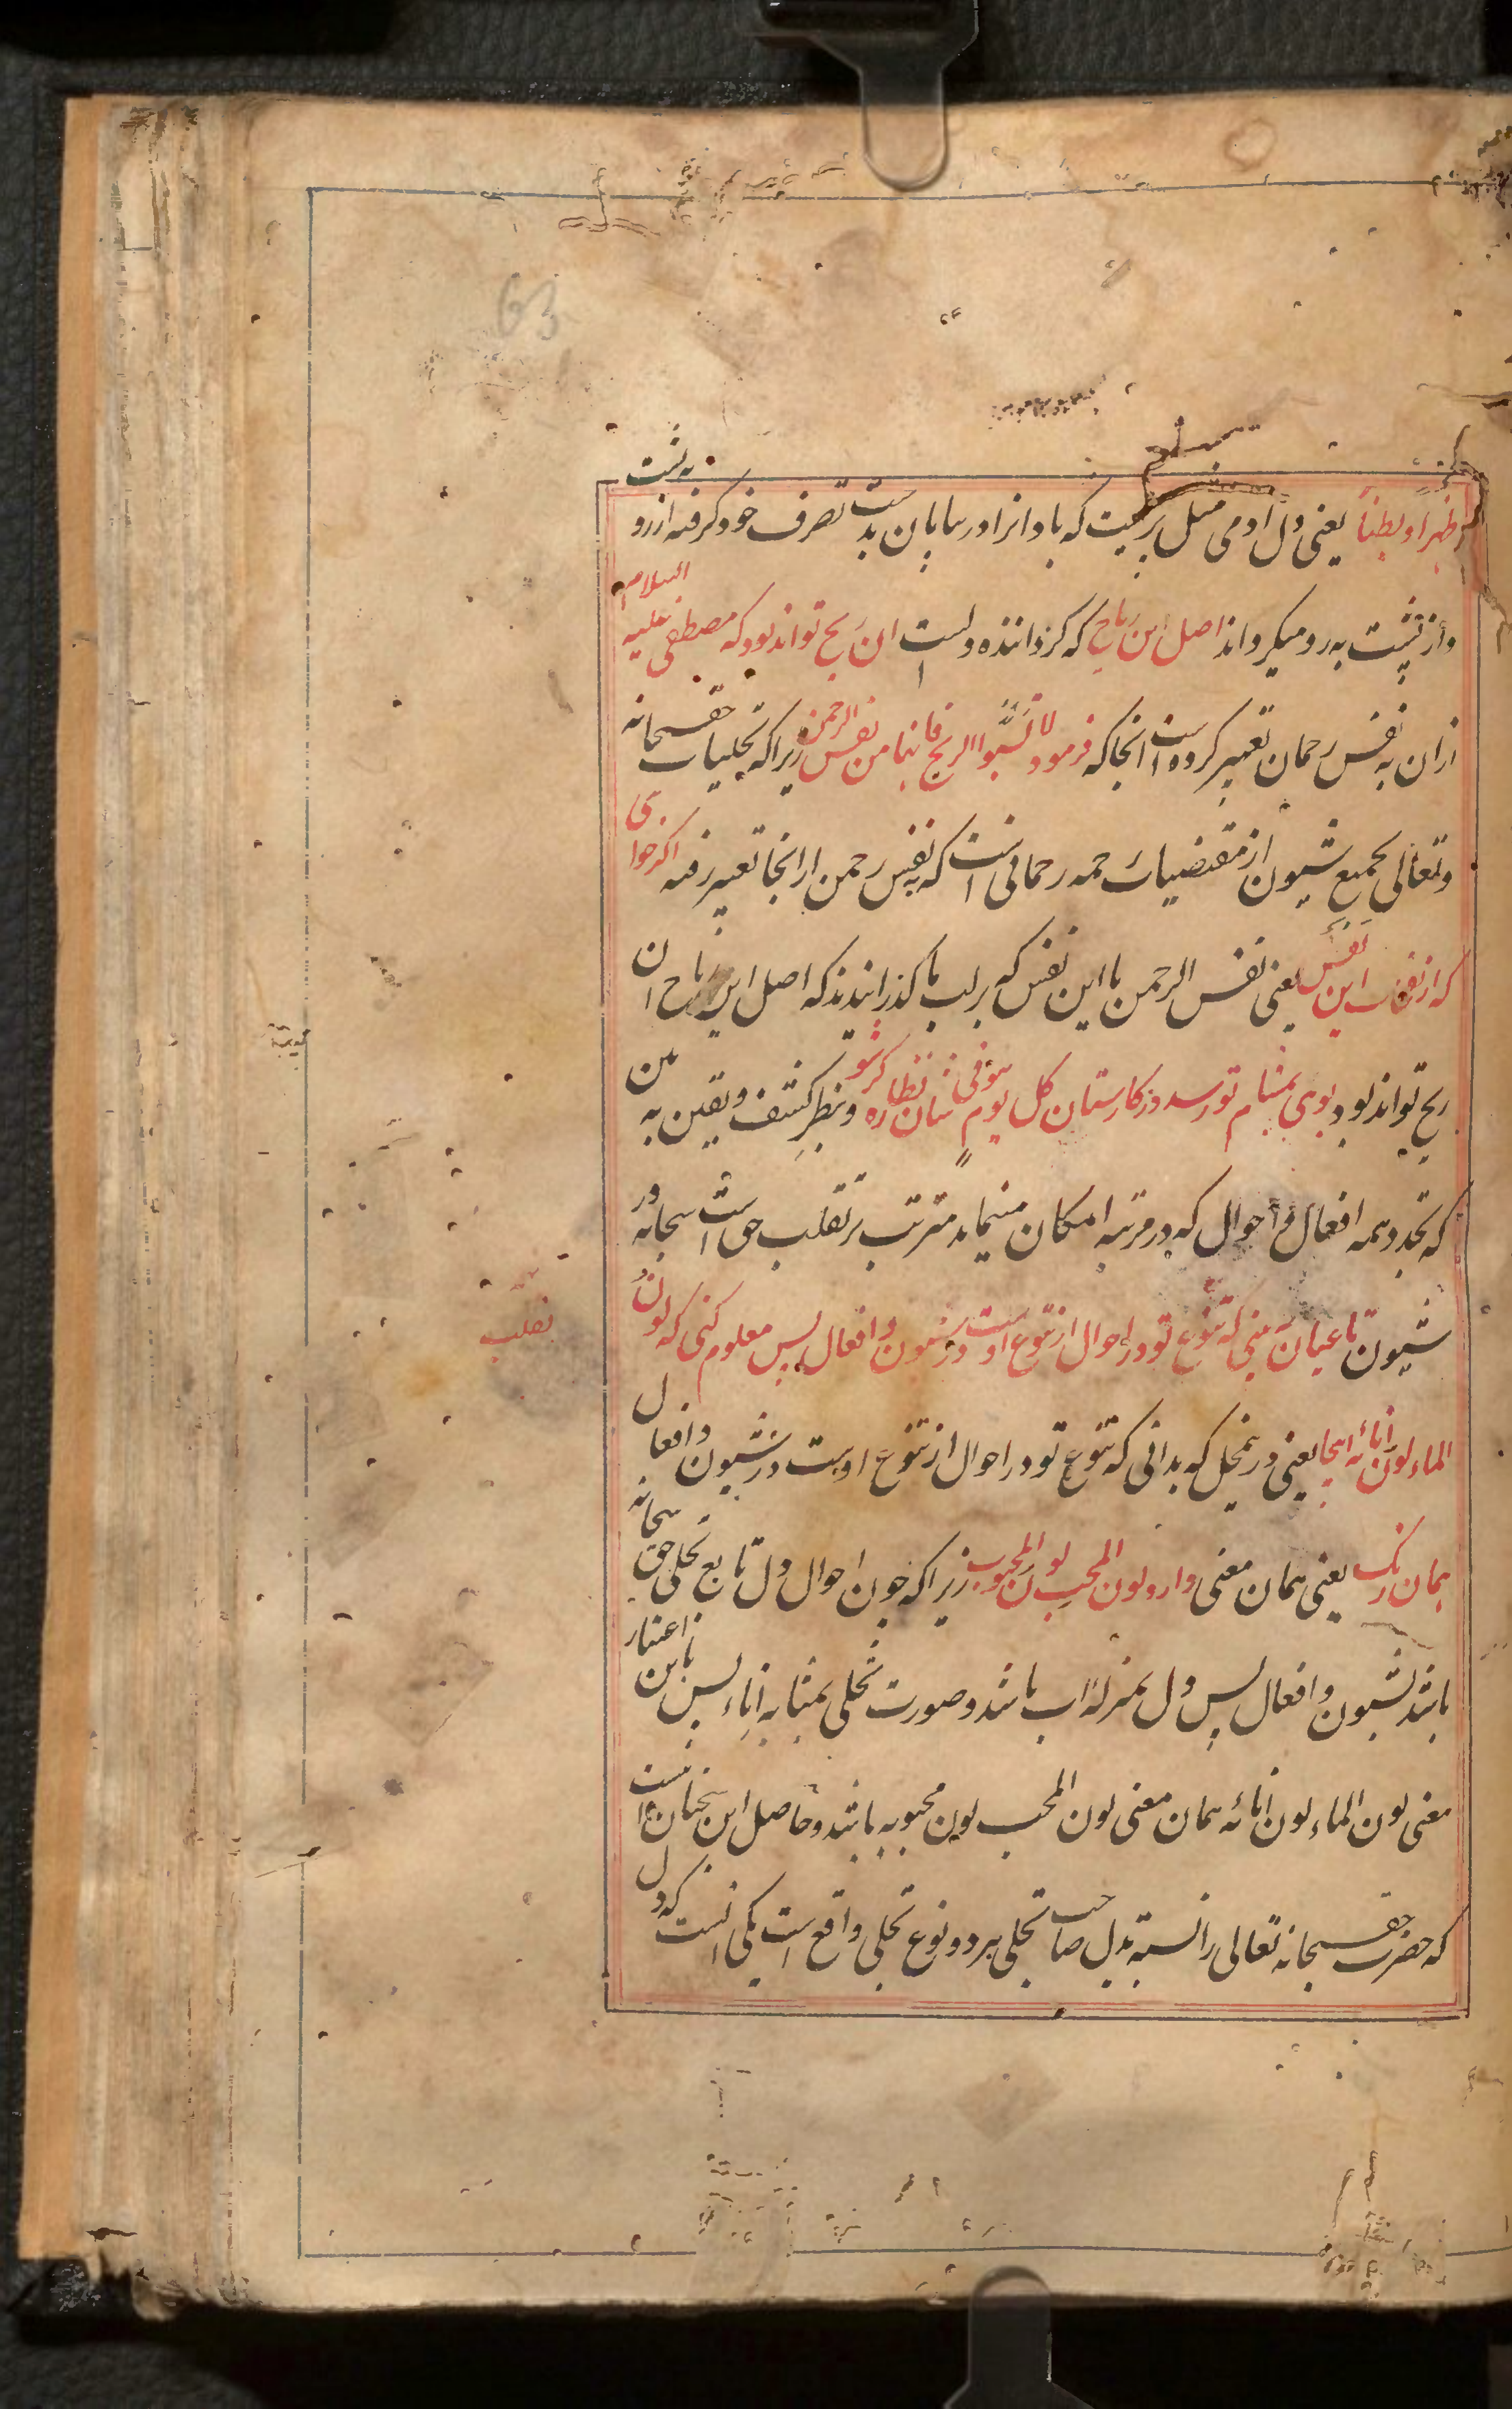 ظهرا و بطنا یعنی دل ادمی مثل پریست که باد انرا در بیابان بدست تصرف خود گرفته از رو به پشت
و از پشت به رو میگرداند اصل این ریاح که گرداننده دلست ان ریح تواند بود که مصطفی علیه السلام
ازان به نفس رحمان تعبیر کرده است انجا که فرمود لا تسبوا الریح فانها من نفس الرحمن زیرا که تجلیات حق سبحانه
و تعالی بجمیع شیون از مقتضیات رحمه رحمانی است که به نفس رحمن ازانجا تعبیر رفته اگر خواهی
که از نفحات این نفس یعنی نفس الرحمن یا این نفس که بر لب ما گذرانیدند که اصل این ریاح ان
ریح تواند بود بوی بمشام تو رسد در کارستان کل یوم هو فی شان نظاره گر شو و بنظر کشف و یقین به بین
که تجدد همه افعال و احوال که در مرتبه امکان مینماید مترتب بر تقلب حق است سبحانه در
شیون تا عیان بینی که تنوع تو در احوال از تنوع اوست در شیون و افعال پس معلوم کنی که لون
الماء لون انائه اینجا یعنی در محل که بدانی که تنوع تو در احوال از تنوع اوست در شیون و افعال
همان رنگ یعنی همان معنی دارد لون المحب لون المحبوب زیرا که چون احوال دل تابع تجلی حق سبحانه
باشد بشیون و افعال پس دل بمنزله اب باشد و صورت تجلی بمثابه اناء پس باین اعتبار
معنی لون الماء لون انائه همان معنی لون المحب لون محبوبه باشد و حاصل این سخنان انست
که حضرت حق سبحانه تعالی را نسبت بدل صاحب تجلی بر دو نوع تجلی واقع است یکی انست که دل
تقلب
63